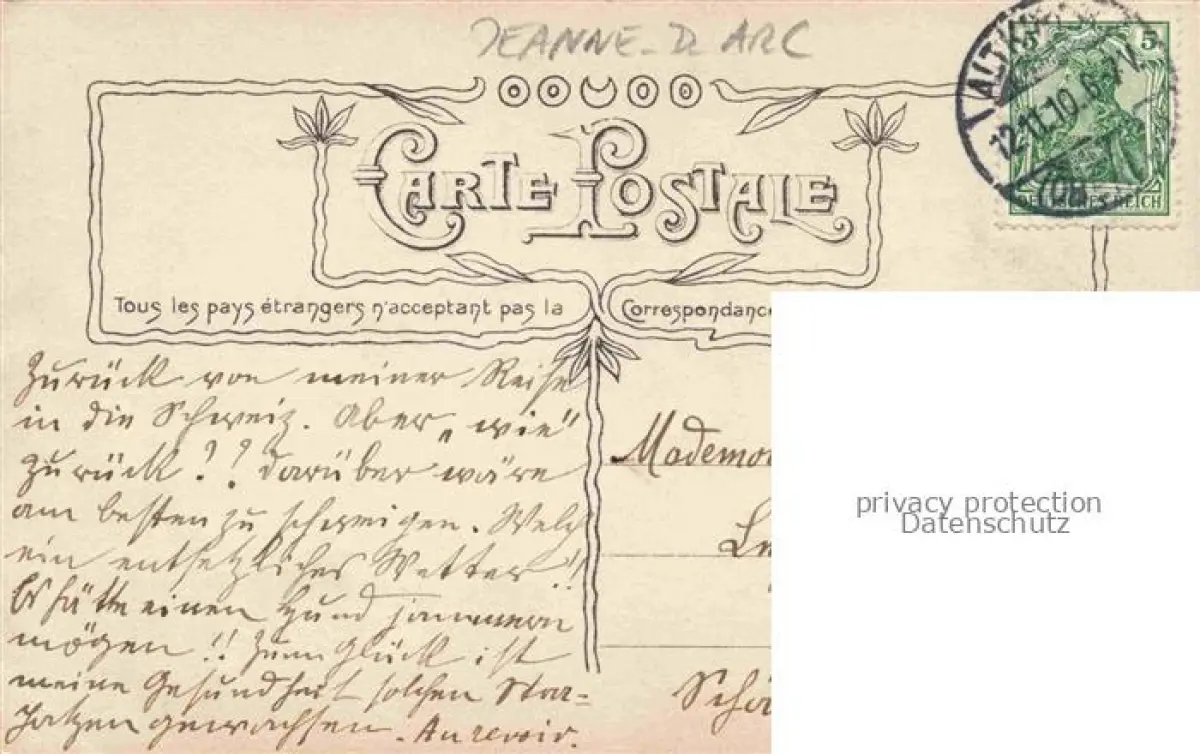 JEANNE-D ARC
ALTKIRCH
12.11.10. 6-7V.
(OB.
5 5
DEUTSCHES REICH
CARTE POSTALE
Tous les pays étrangers n'acceptant pas la Correspondance
Zurück von meiner Reise
in die Schweiz. Aber „wie"
zurück?? Darüber wäre
am besten zu schweigen. Welch
ein entsetzliches Wetter!!
Es hätte einen Hund jammern
mögen!! Zum Glück ist
meine Gesundheit solchen Stra-
patzen gewachsen. Au revoir.
Mademoi
Schö
privacy protection
Datenschutz